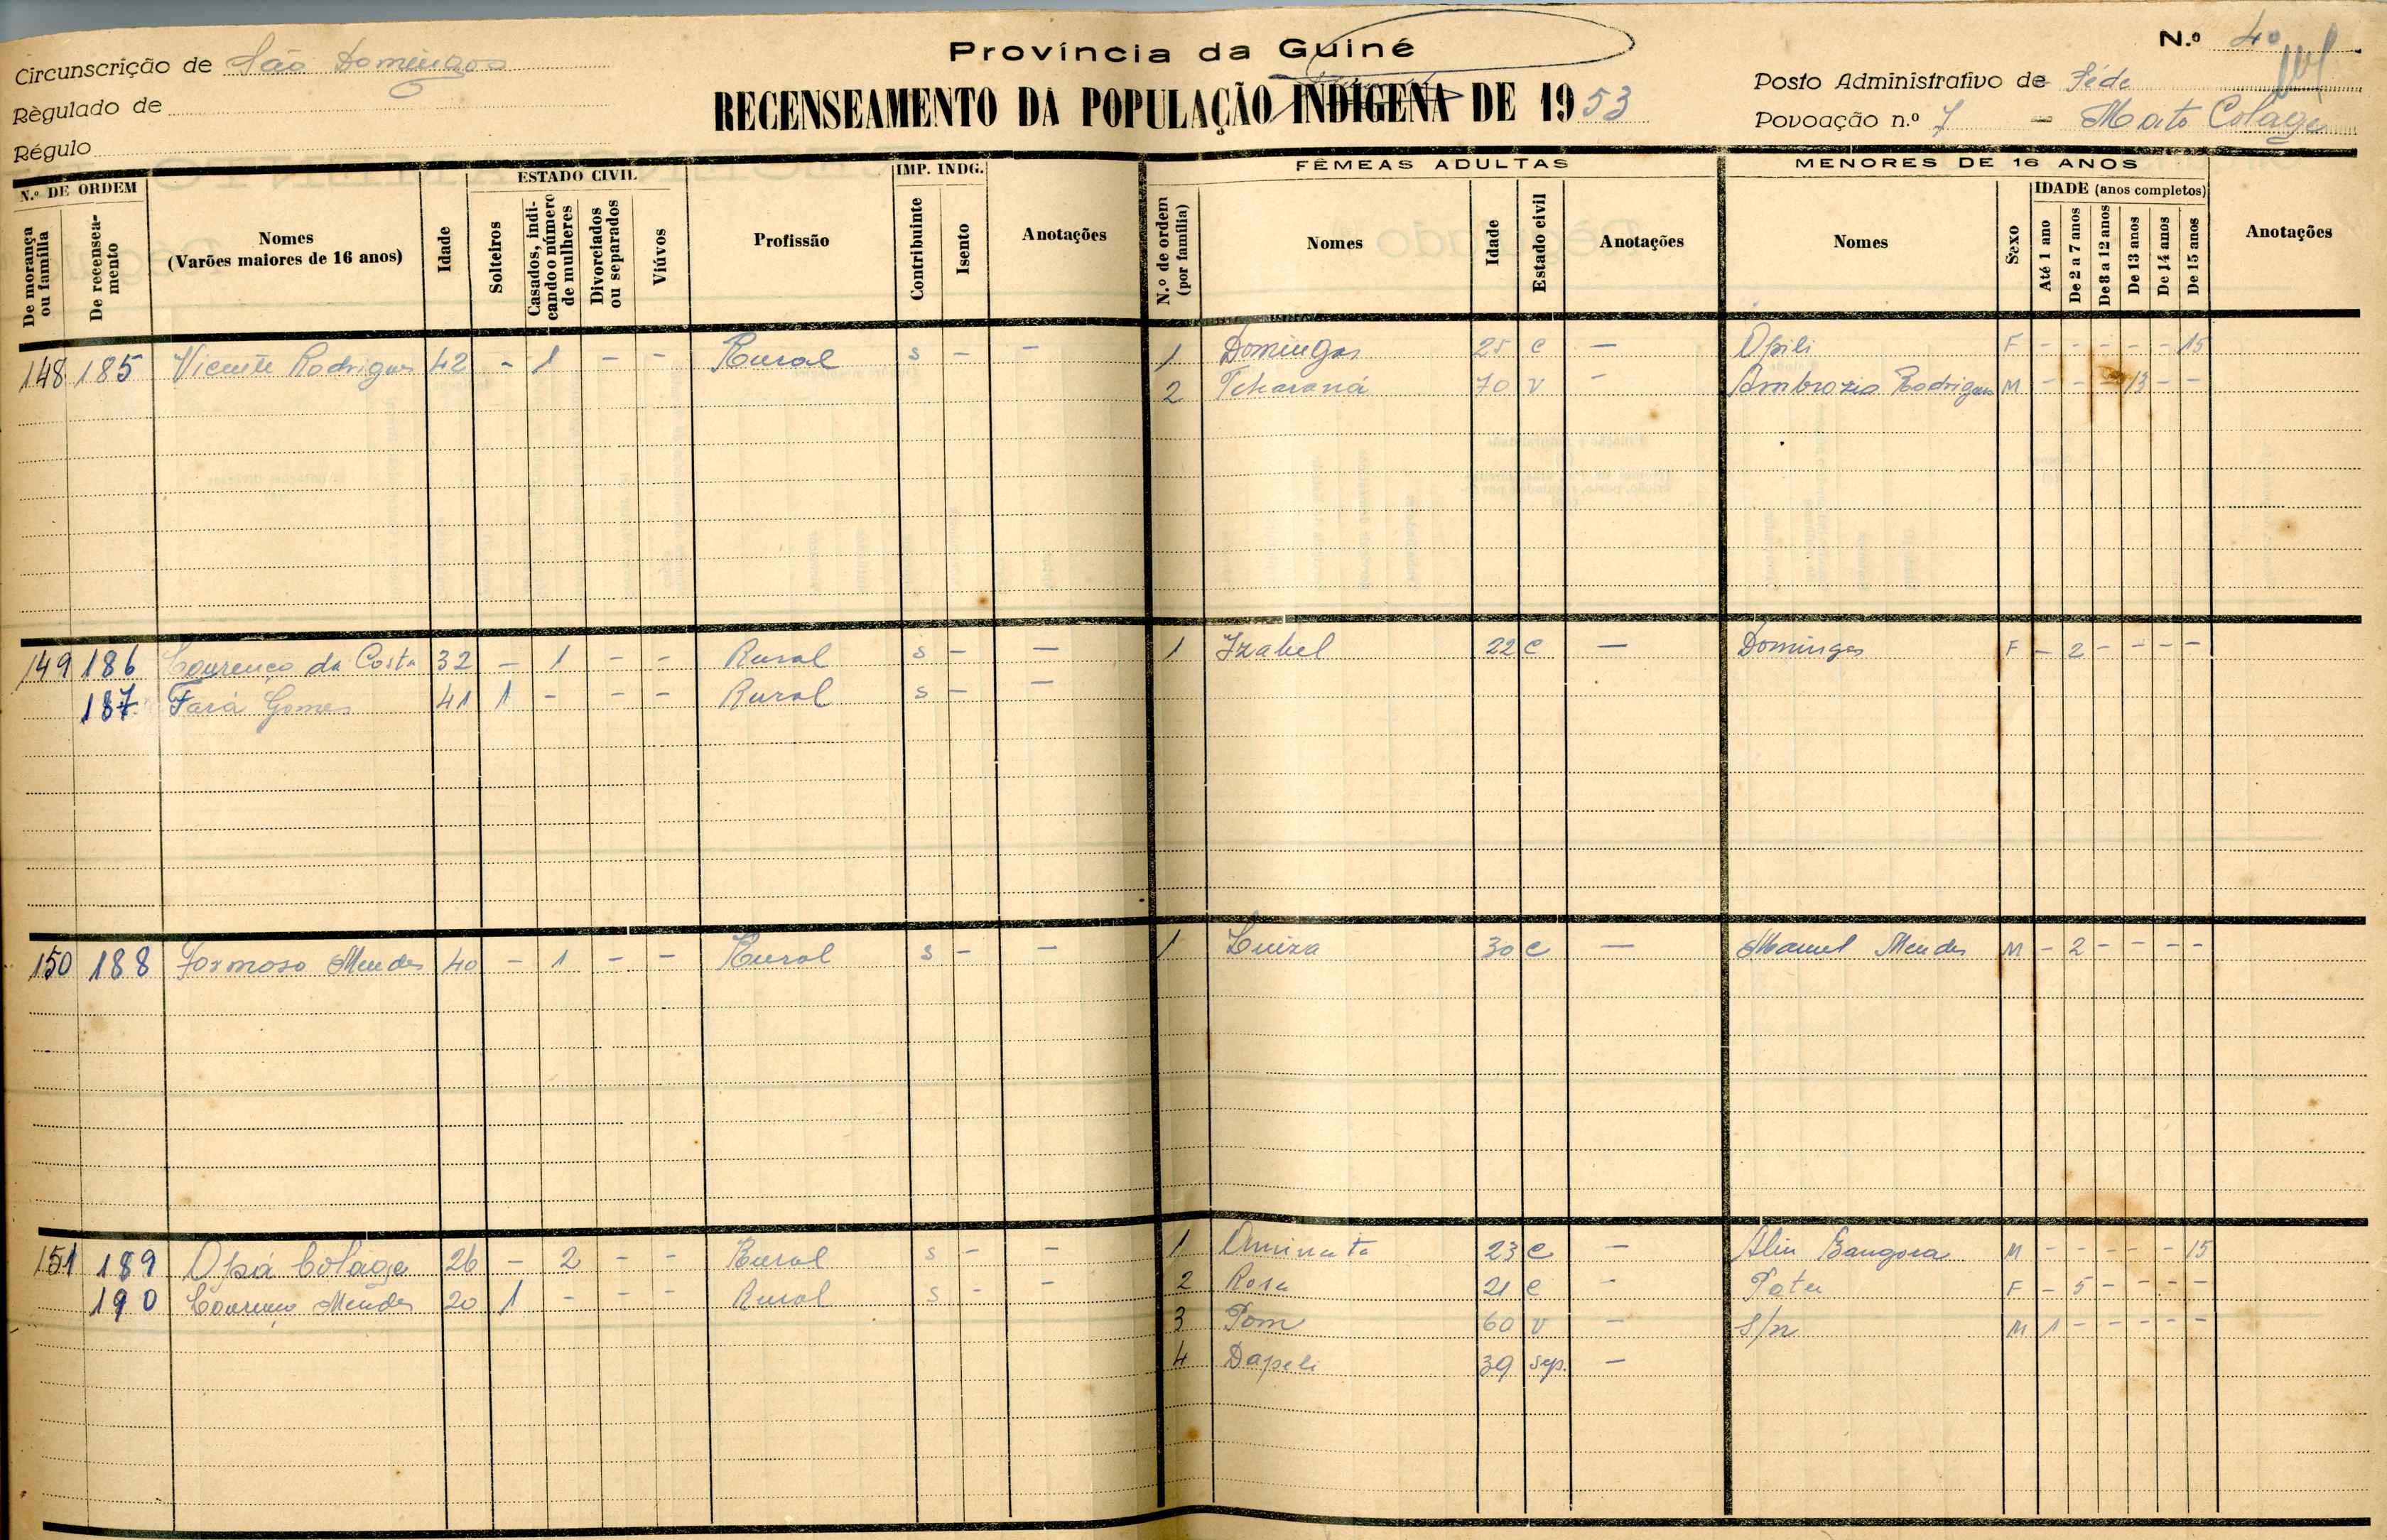 Província da Guiné
N.º 40
Circunscrição de São Domingos
Règulado de
Régulo
RECENSEAMENTO DA POPULAÇÃO INDÍGENA DE 1953
Posto Administrativo de Séde
Povoação n.º 7 - Mato Colage
N.º DE ORDEM
De morança ou família
De recenseamento
Nomes
(Varões maiores de 16 anos)
Idade
ESTADO CIVIL
Solteiros
Casados, indicando o número de mulheres
Divorciados ou separados
Viúvos
Profissão
IMP. INDG.
Contribuinte
Isento
Anotações
FÊMEAS ADULTAS
N.º de ordem (por família)
Nomes
Idade
Estado civil
Anotações
MENORES DE 16 ANOS
Nomes
Sexo
IDADE (anos completos)
Até 1 ano
De 2 a 7 anos
De 8 a 12 anos
De 13 anos
De 14 anos
De 15 anos
Anotações
148 185 Vicente Rodrigues 42 - 1 - - Rural s - - 1 Domingas 25 c - Opili F - - - - - 15
2 Tcharaná 70 v - Ambrozio Rodrigues M - - - 13 - -
149 186 Lourenço da Costa 32 - 1 - - Rural s - - 1 Izabel 22 c - Domingas F - 2 - - - -
187 Fará Gomes 41 1 - - - Rural s - -
150 188 Formoso Mendes 40 - 1 - - Rural s - - 1 Luiza 30 c - Manuel Mendes M - 2 - - - -
151 189 Opá Colage 26 - 2 - - Rural s - - 1 Aminata 23 c - Aliu Bangora M - - - - - 15
190 Lourenço Mendes 20 1 - - - Rural s - - 2 Rosa 21 c - F - 5 - - - -
3 Pom 60 v - S/n M 1 - - - - -
4 Dapeli 39 sep. -